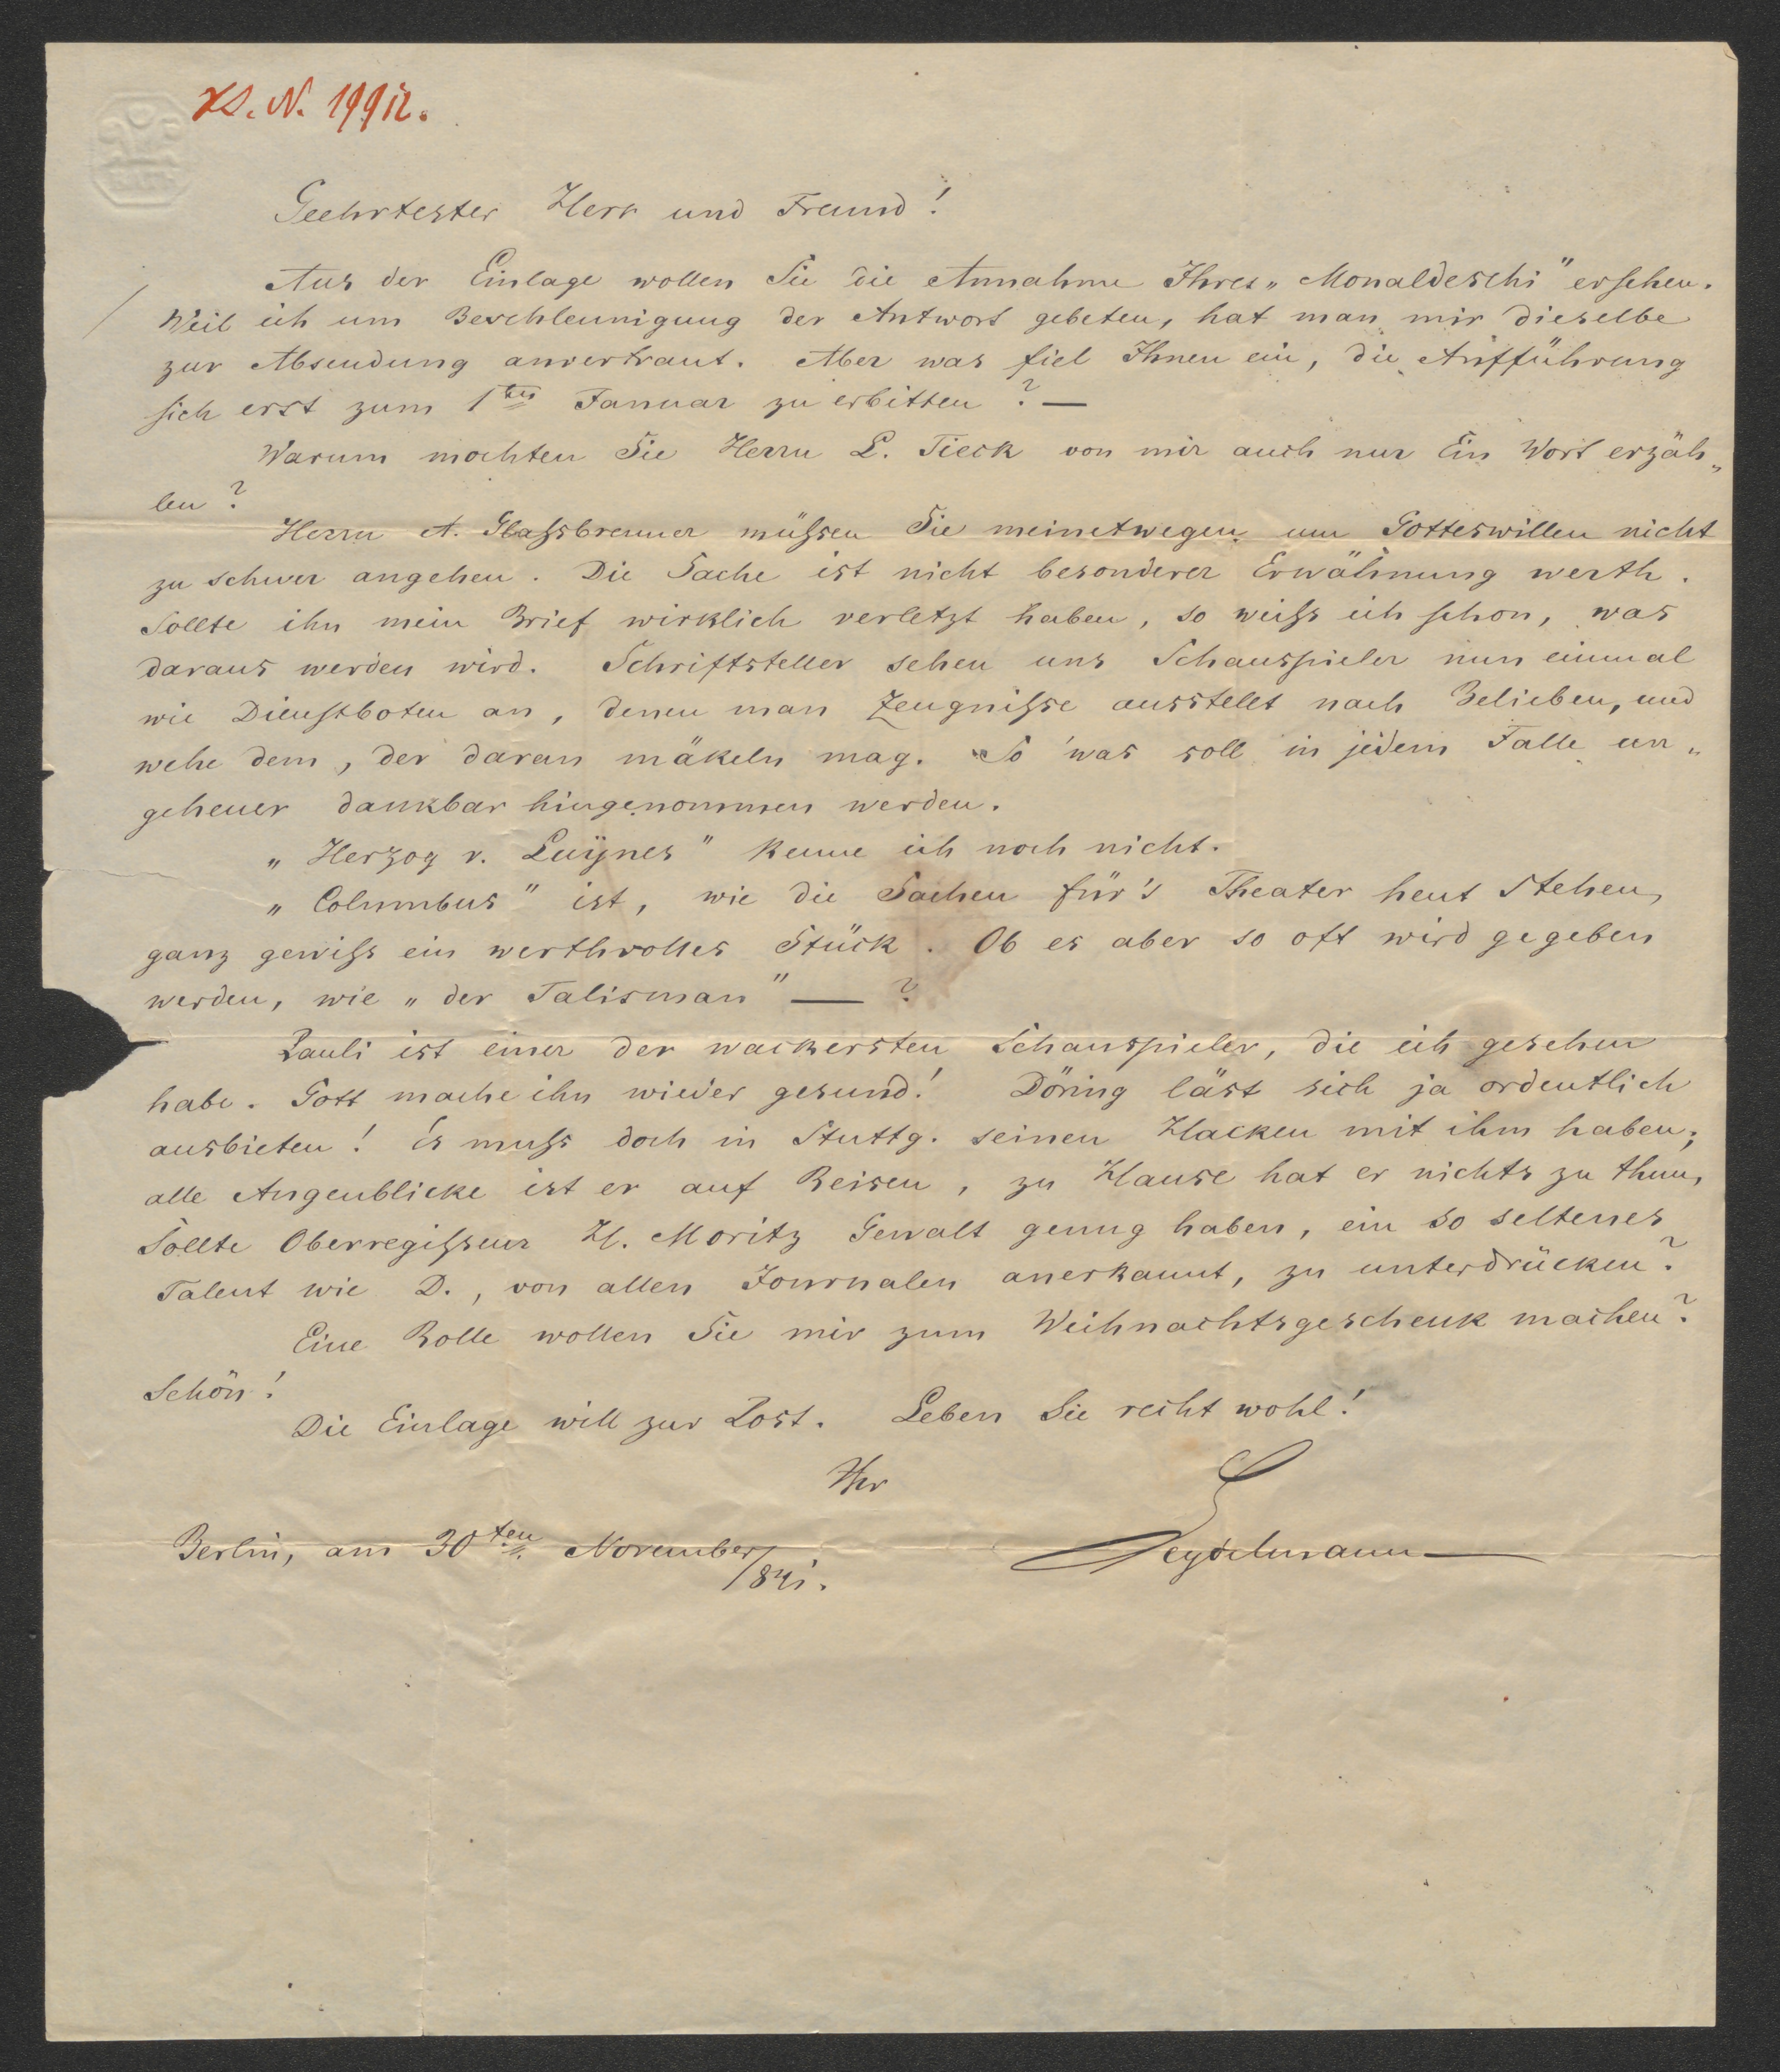 H.S. N. 19912.
Geehrtester Herr und Freund!
Aus der Einlage wollen Sie die Annahme Ihres „Monaldeschi" ersehen.
Weil ich um Beschleunigung der Antwort gebeten, hat man mir dieselbe
zur Absendung anvertraut. Aber was fiel Ihnen ein, die Aufführung
sich erst zum 1ten Januar zu erbitten? —
Warum mochten Sie Herrn L. Tieck von mir auch nur Ein Wort erzäh„
len?
Herrn A. Glassbrenner müssen Sie meinetwegen um Gotteswillen nicht
zu schwer angehen. Die Sache ist nicht besonderer Erwähnung werth.
Sollte ihn mein Brief wirklich verletzt haben, so weiss ich schon, was
daraus werden wird. Schriftsteller sehen uns Schauspieler nun einmal
wie Dienstboten an, denen man Zeugnisse ausstellt nach Belieben, und
wehe dem, der daran mäkeln mag. So 'was soll in jedem Falle un„
geheuer dankbar hingenommen werden.
„Herzog v. Luÿnes" kenne ich noch nicht.
„Columbus" ist, wie die Sachen für's Theater heut stehen,
ganz gewiss ein werthvolles Stück. Ob es aber so oft wird gegeben
werden, wie „der Talisman" — ?
Pauli ist einer der wackersten Schauspieler, die ich gesehen
habe. Gott mache ihn wieder gesund! Döring läst sich ja ordentlich
ausbieten! Es muss doch in Stuttg. seinen Hacken mit ihm haben;
alle Augenblicke ist er auf Reisen, zu Hause hat er nichts zu thun,
Sollte Oberregisseur H. Moritz Gewalt genug haben, ein so seltenes
Talent wie D., von allen Journalen anerkannt, zu unterdrücken?
Eine Rolle wollen Sie mir zum Weihnachtsgeschenk machen?
Schön!
Die Einlage will zur Post. Leben Sie recht wohl!
Ihr
Seydelmann
Berlin, am 30ten November
/841.